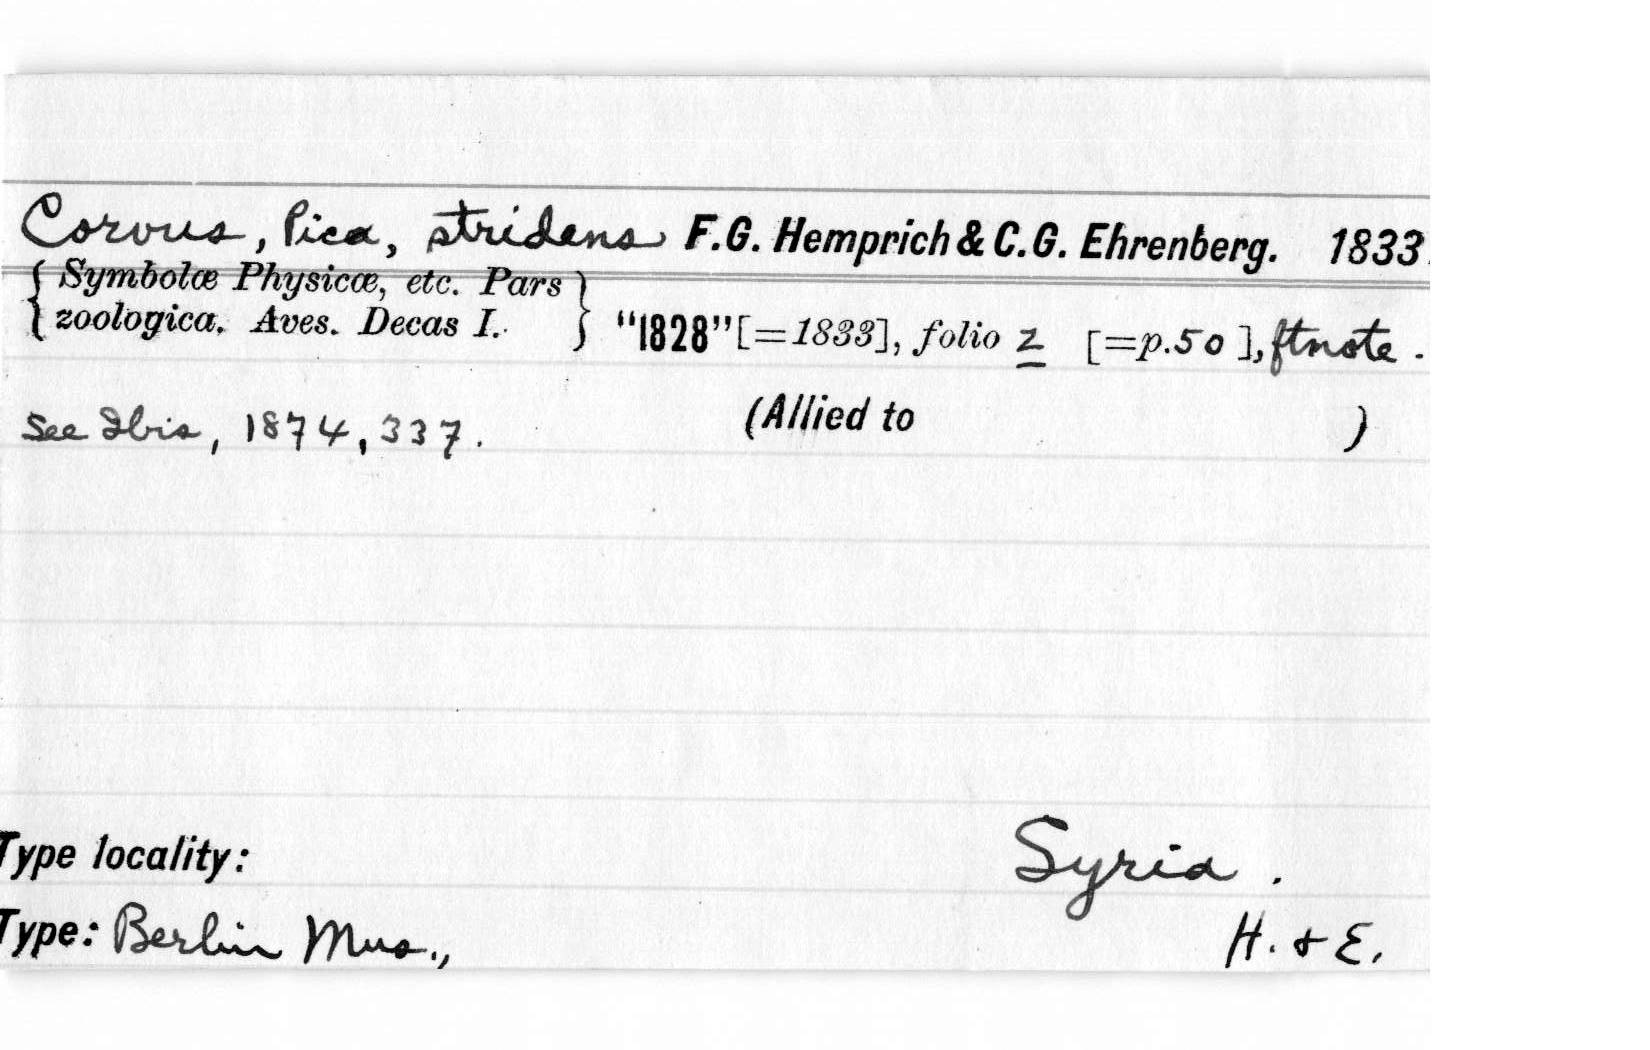 Corvus, Pica, stridens F.G. Hemprich & C.G. Ehrenberg. 1833.
{ Symbolæ Physicæ, etc. Pars
zoologica. Aves. Decas I. } "1828" [=1833], folio z [=p.50], ftnote.
See Ibis, 1874, 337. (Allied to )
Type locality: Syria.
Type: Berlin Mus., H. & E.